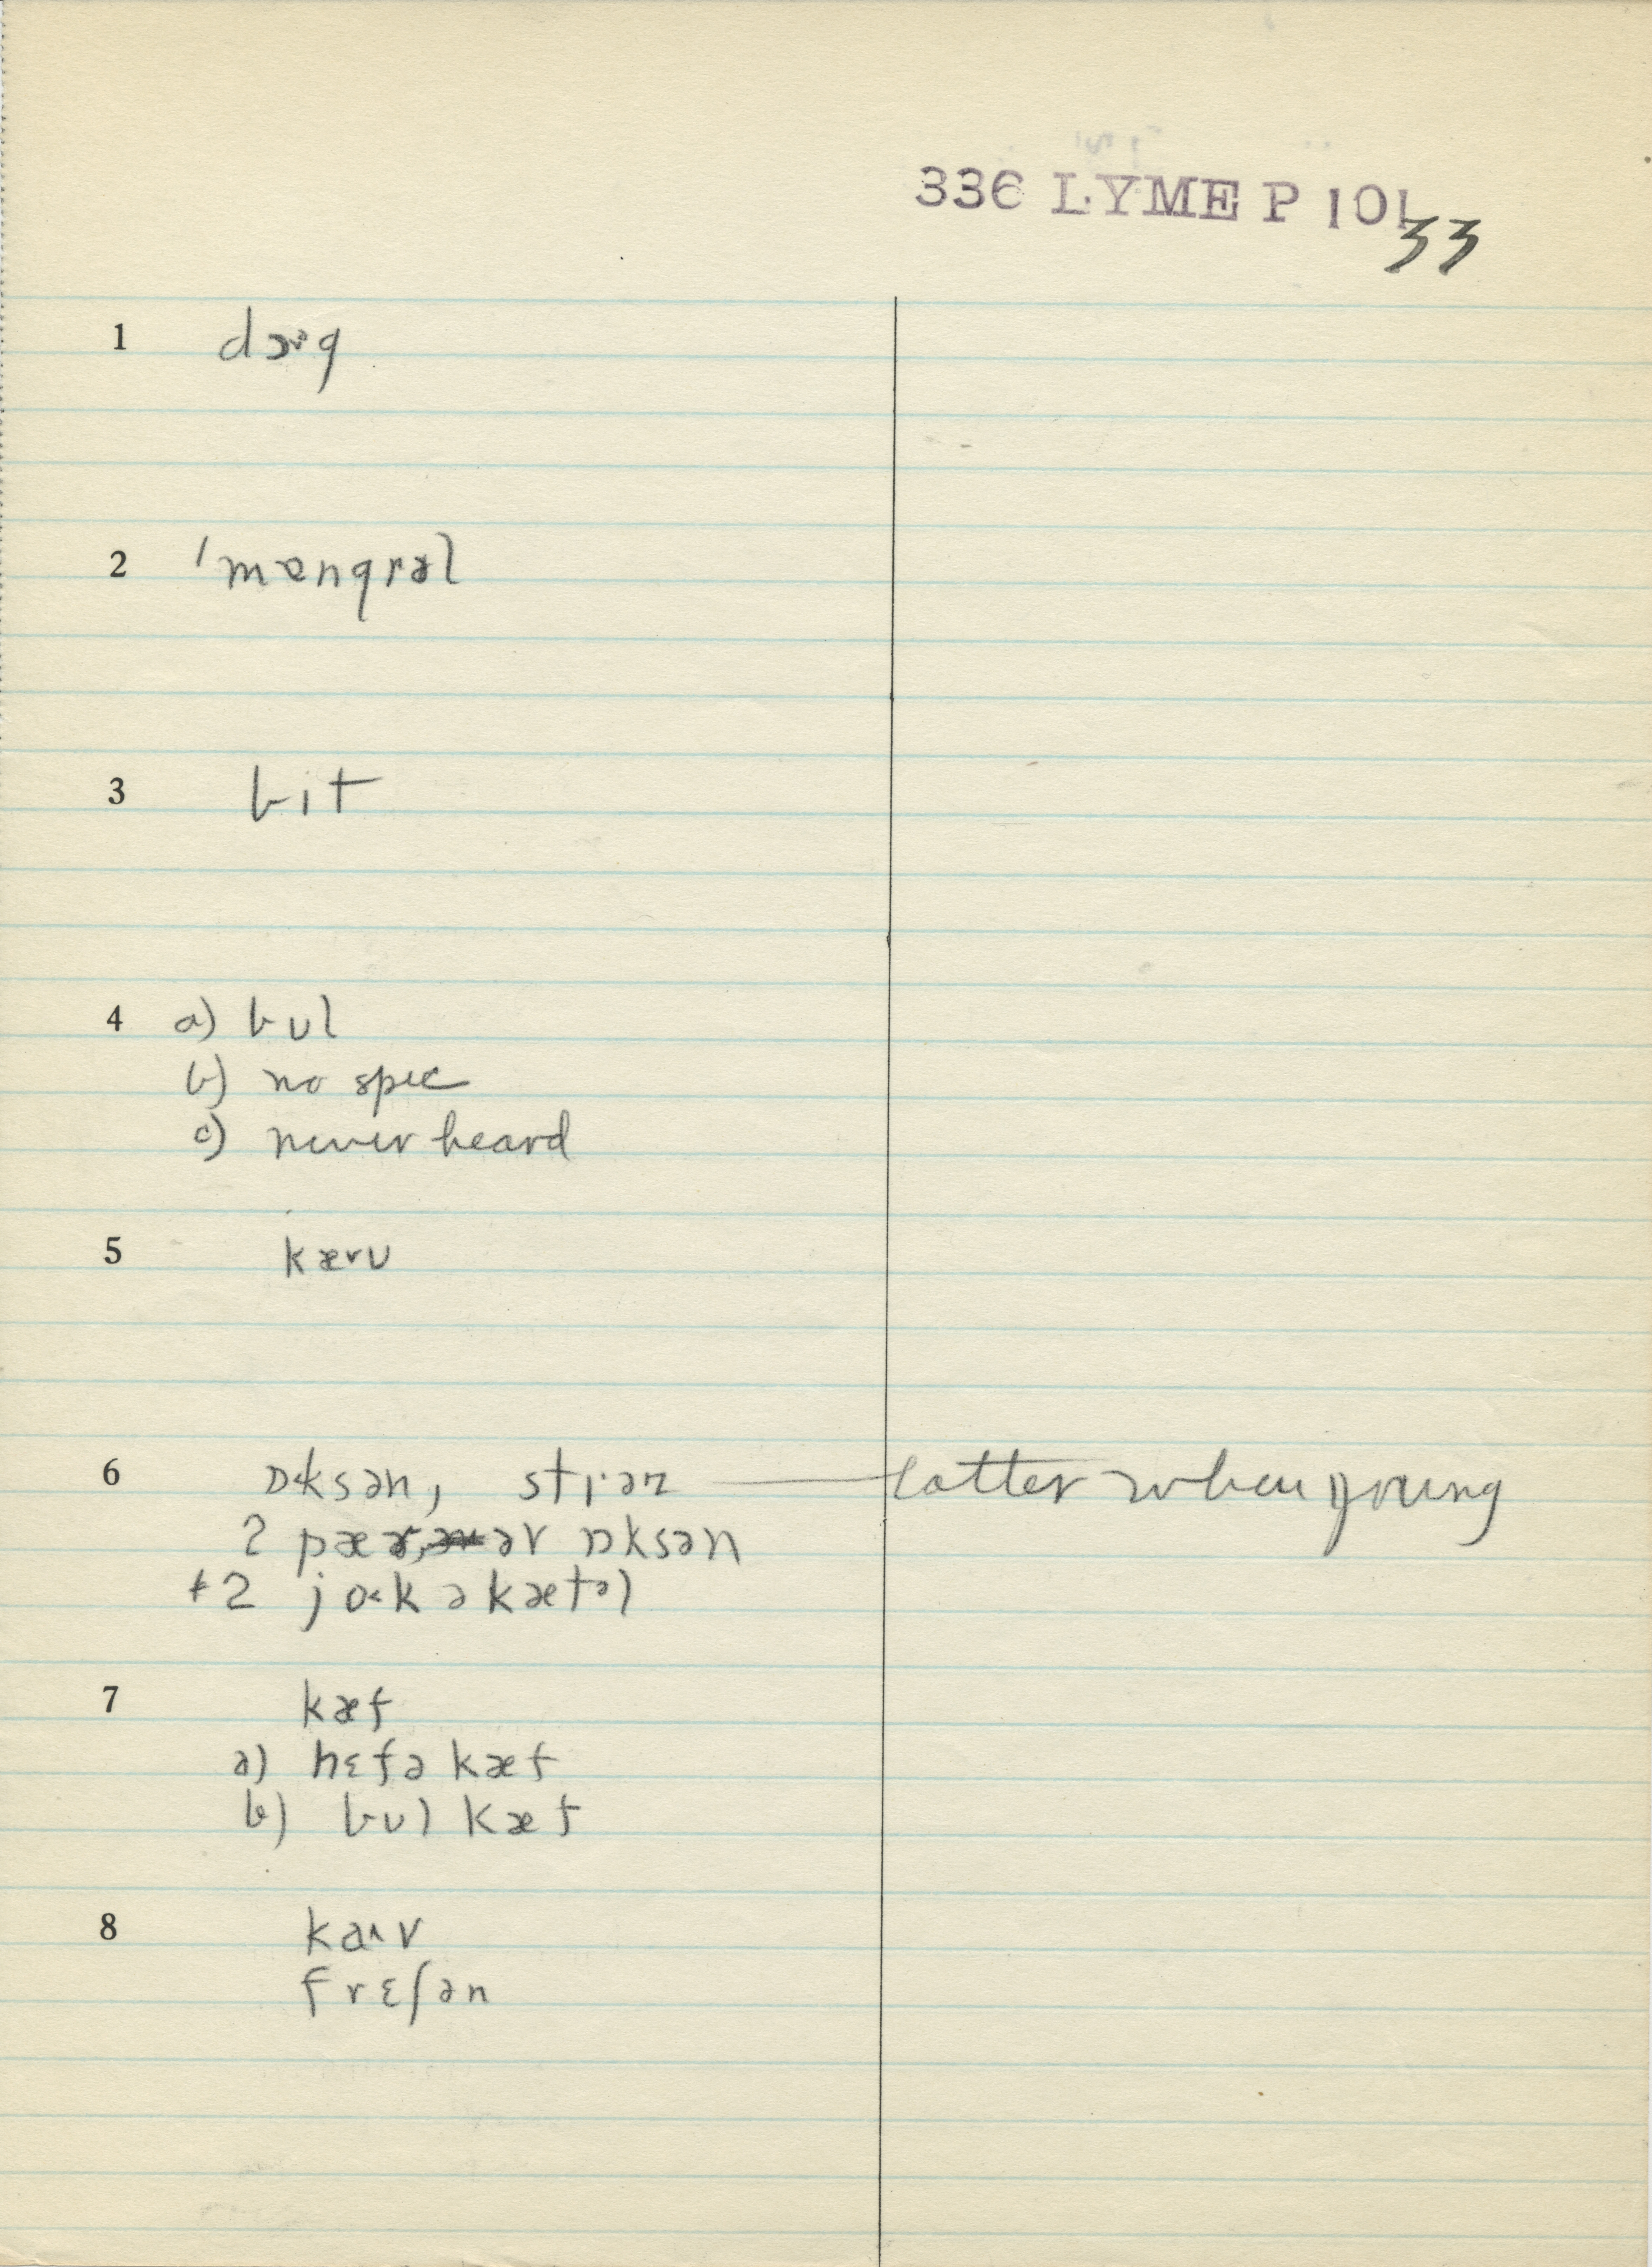 336 LYME P 101
33
1 dɔ˞g
2 ˈməngrəl
3 bit
4 a) bul
b) no spec
c) never heard
5 kæru
6 ɒ˂ksən, sti·ɚz — latter when young
2 pæɚ, əv ɒksən
+2 jo˂k ə kætəl
7 kæf
a) hɛfə kæf
b) bul kæf
8 ka˄v
frɛʃən